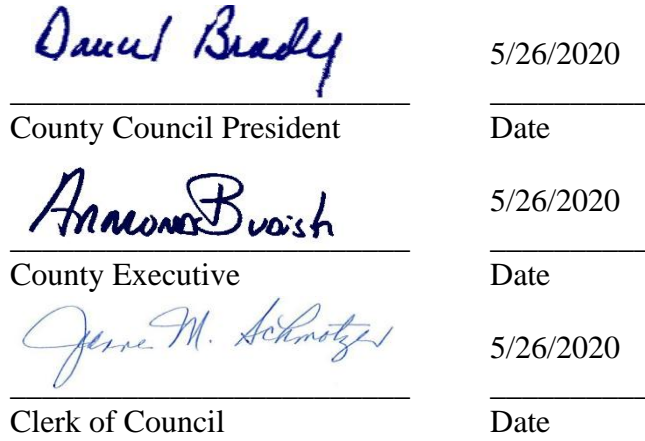 Daniel Brady 5/26/2020
County Council President Date
5/26/2020
County Executive Date
Jeanne M. Schmotzer 5/26/2020
Clerk of Council Date